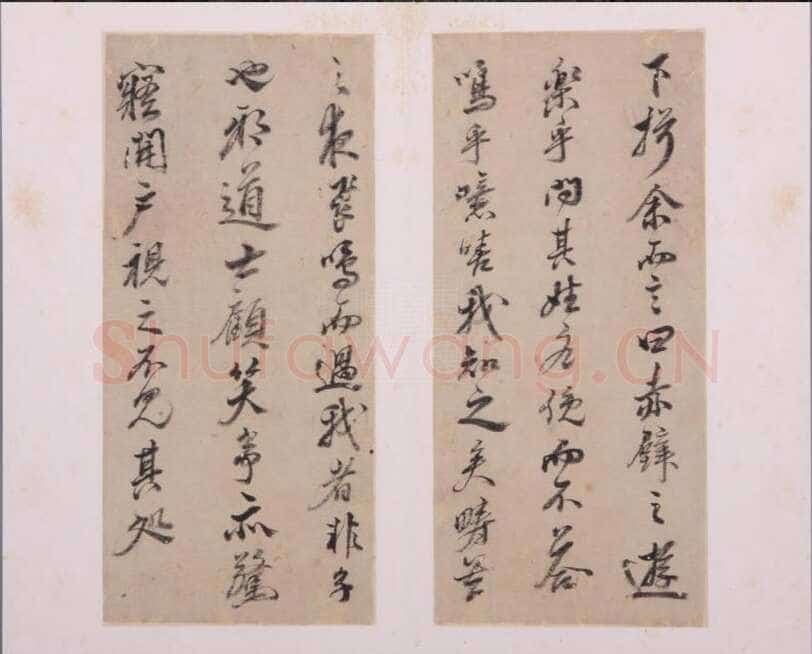 下揖余而言曰赤壁之遊
樂乎問其姓名俛而不答
嗚乎噫嘻我知之矣疇昔
之夜飛鳴而過我者非子
也邪道士顧笑予亦驚
寤開戶視之不見其処
Shufawang.CN